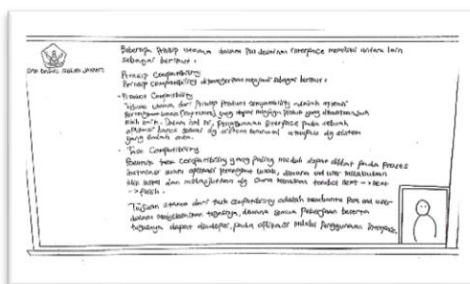 Beberapa Prinsip utama dalam Pendesainan Interface meliputi antara lain
sebagai berikut :
Prinsip Compatibility
Prinsip compatibility dikategorikan menjadi sebagai berikut :
- Product Compatibility
Tujuan utama dari Prinsip Product compatibility adalah
lebih baik. Dalam hal ini, Penggunaan Interface pada sebuah
aplikasi harus sesuai dg sistem manual ataupun dg sistem
yang sudah ada.
- Task Compatibility
Bentuk task compatibility yang paling mudah dapat dilihat pada Proses
instalasi suatu aplikasi perangkat lunak, dimana end user melakukan
klik instal dan melanjutkan dg cara menekan tombol next -> next
-> finish.
Tujuan utama dari task compatibility adalah membantu Para end user
dalam menyelesaikan tugasnya, dimana semua Pekerjaan beserta
tugasnya dapat pada aplikasi melalui Penggunaan Interface.